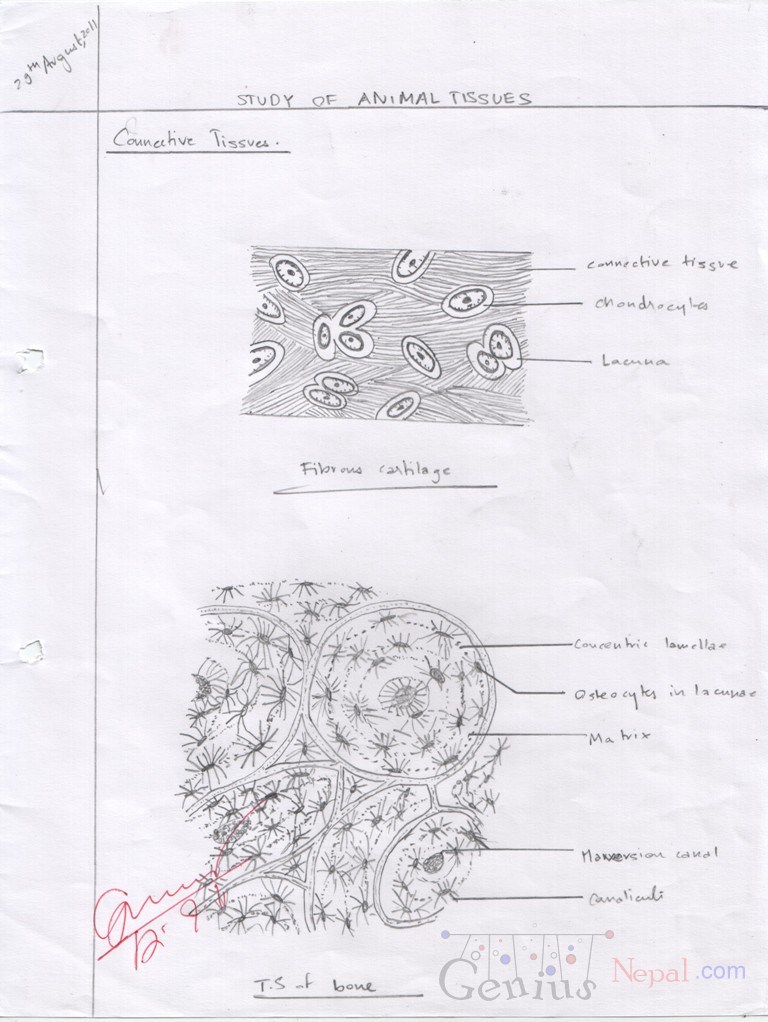 29th August, 2011
STUDY OF ANIMAL TISSUES
Connective Tissues.
connective tissue
chondrocytes
Lacuna
Fibrous cartilage
Concentric lamellae
Osteocytes in lacunae
Matrix
Haversion canal
Canaliculi
T.S of bone
Genius Nepal.com